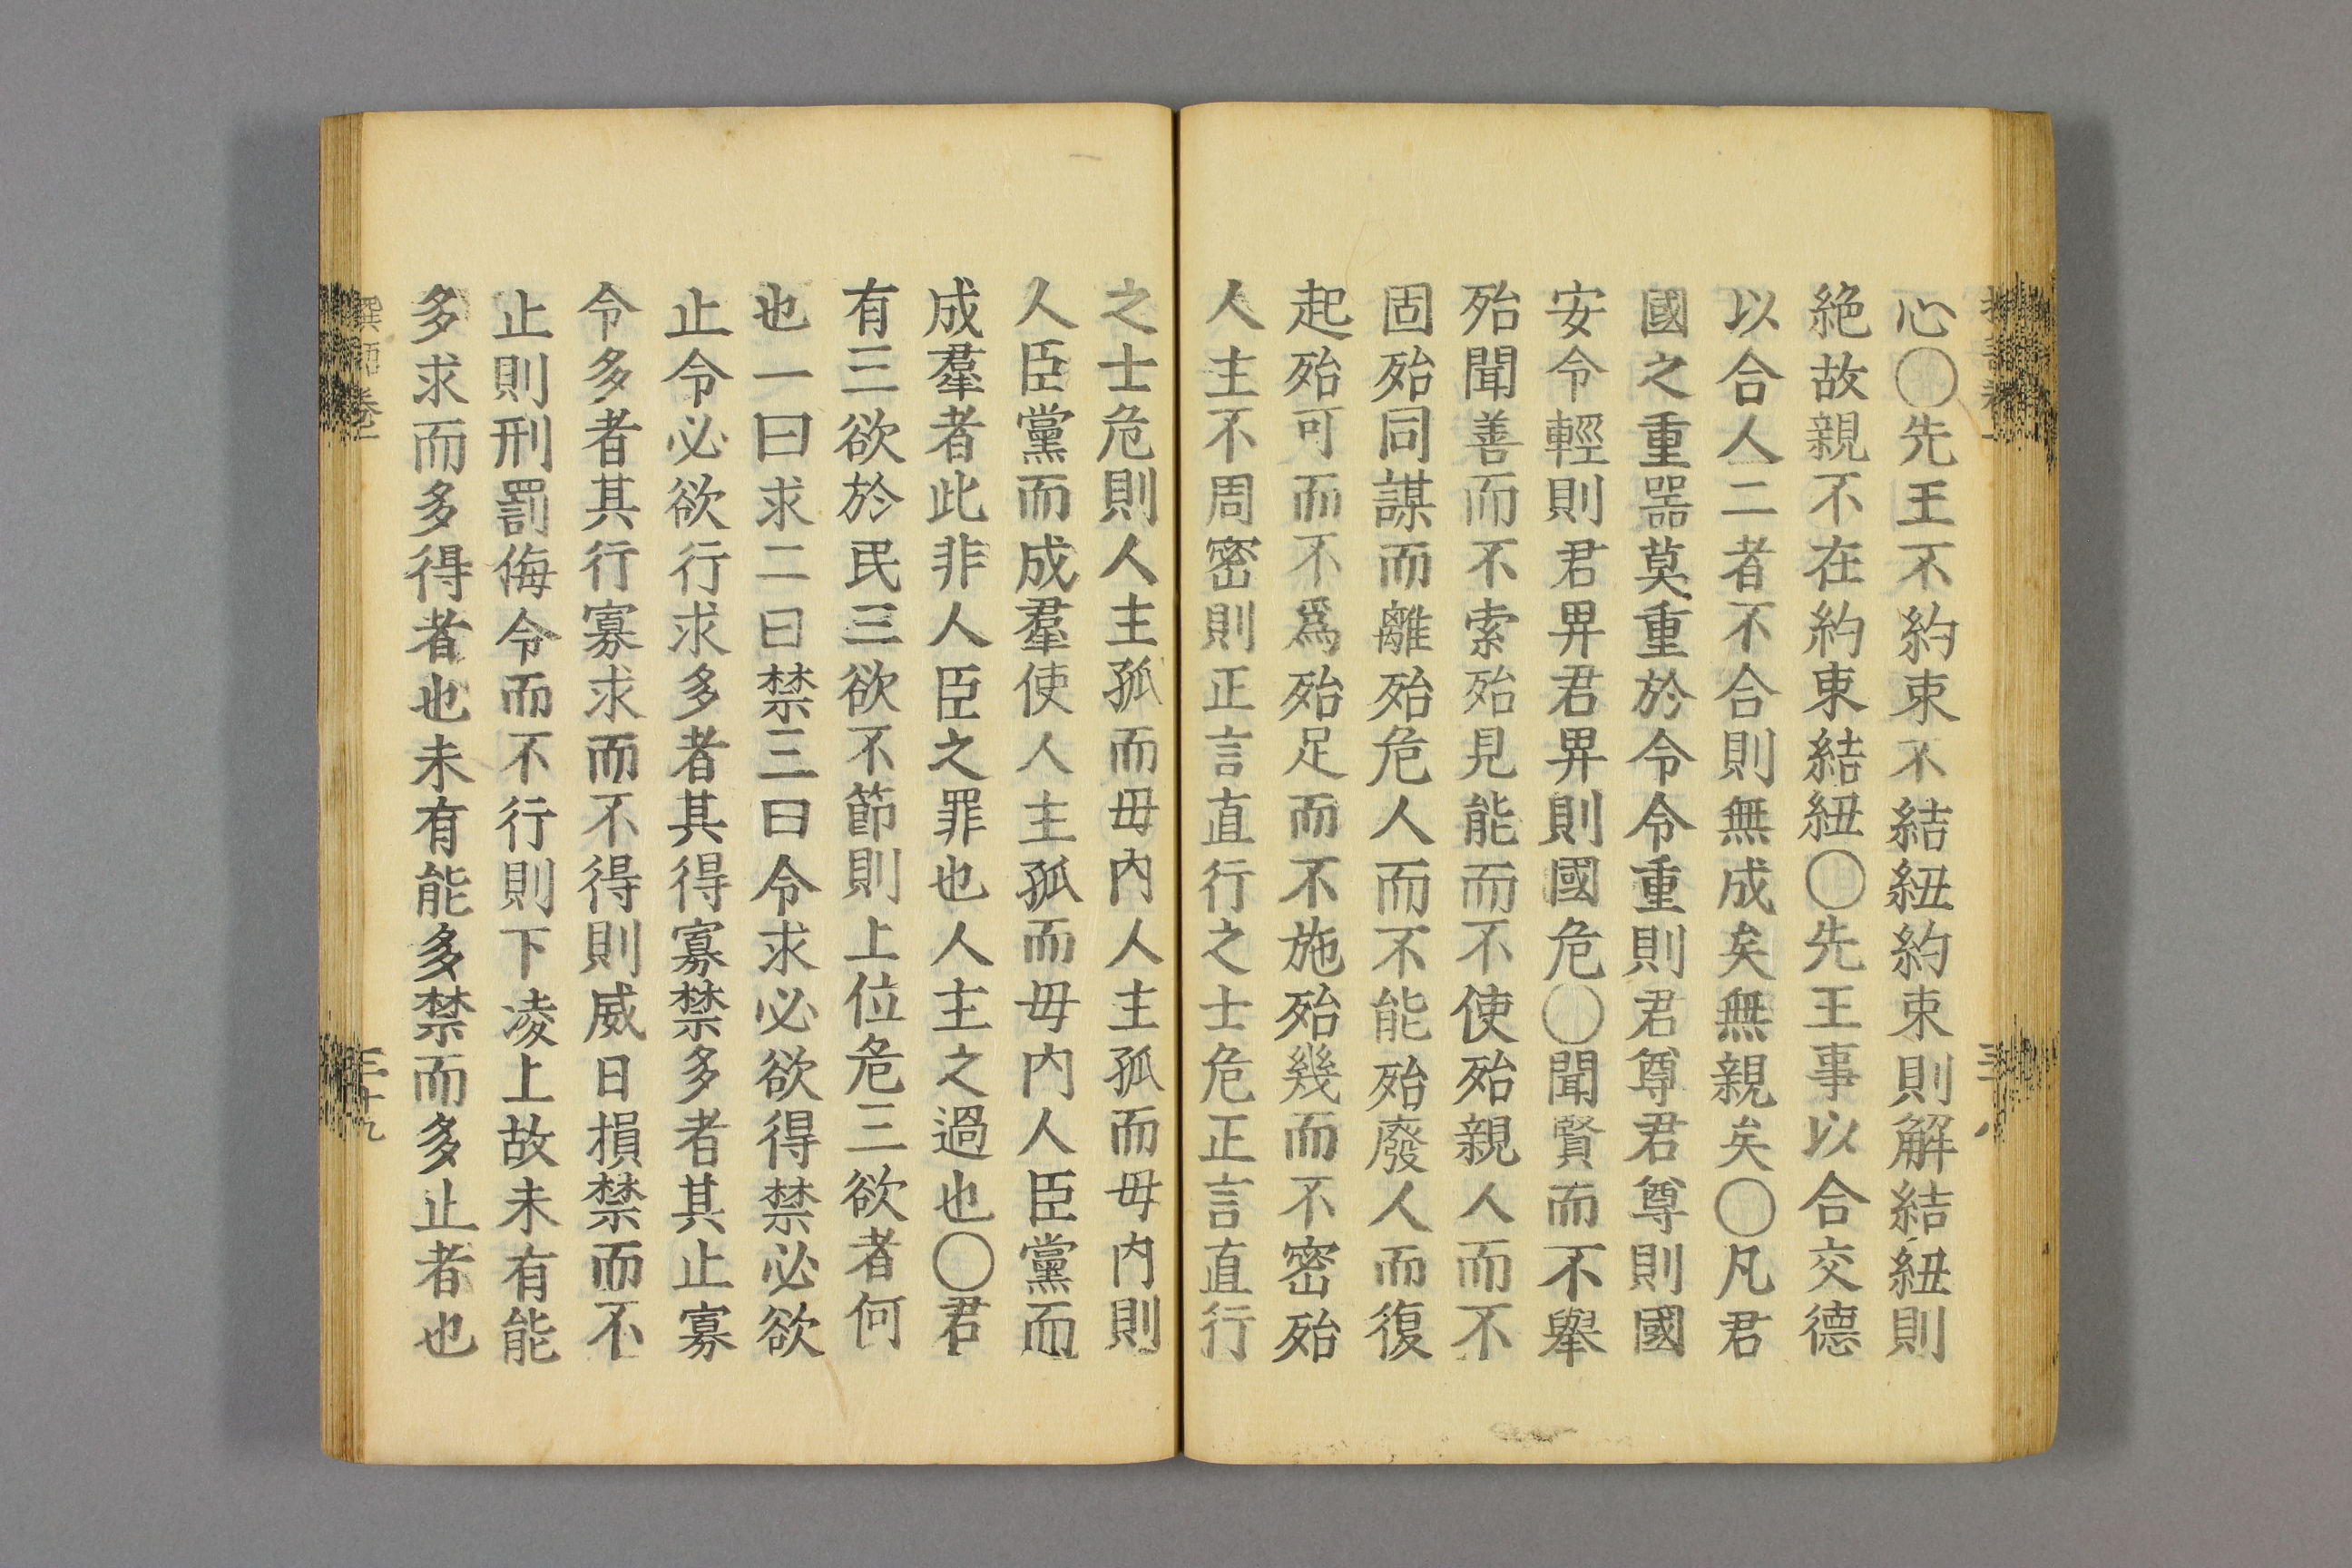 心○先王不約束不結紐約束則解結紐則
絶故親不在約束結紐○先王事以合交德
以合人二者不合則無成矣無親矣○凡君
國之重噐莫重於令令重則君尊君尊則國
安令輕則君畀君畀則國危○聞賢而不舉
殆聞善而不索殆見能而不使殆親人而不
固殆同謀而離殆危人而不能殆廢人而復
起殆可而不爲殆足而不施殆幾而不密殆
人主不周密則正言直行之士危正言直行
之士危則人主孤而毋内人主孤而毋内則
人臣黨而成羣使人主孤而毋内人臣黨而
成羣者此非人臣之罪也人主之過也○君
有三欲於民三欲不節則上位危三欲者何
也一曰求二曰禁三曰令求必欲得禁必欲
止令必欲行求多者其得寡禁多者其止寡
令多者其行寡求而不得則威日損禁而不
止則刑罰侮令而不行則下凌上故未有能
多求而多得者也未有能多禁而多止者也
卷一
三十九